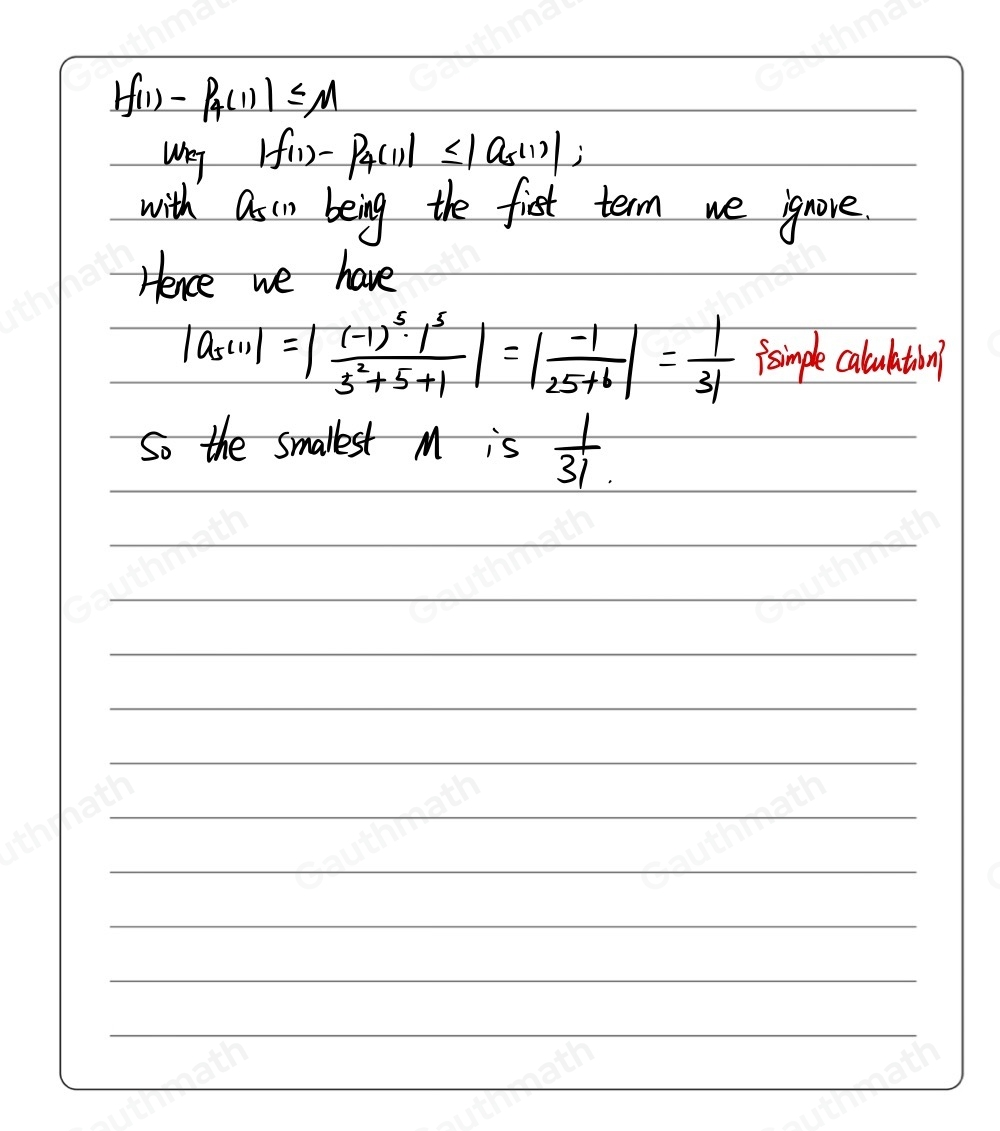 |f(1) - P₄(1)| ≤ M
|f(1) - P₄(1)| ≤ |a₅(1)| ;
with a₅(1) being the first term we ignore.
Hence we have
|a₅(1)| = | (-1)⁵·1⁵ / 5²+5+1 | = | -1 / 25+6 | = 1/31 {simple calculation}
So the smallest M is 1/31 .
Gauthmath